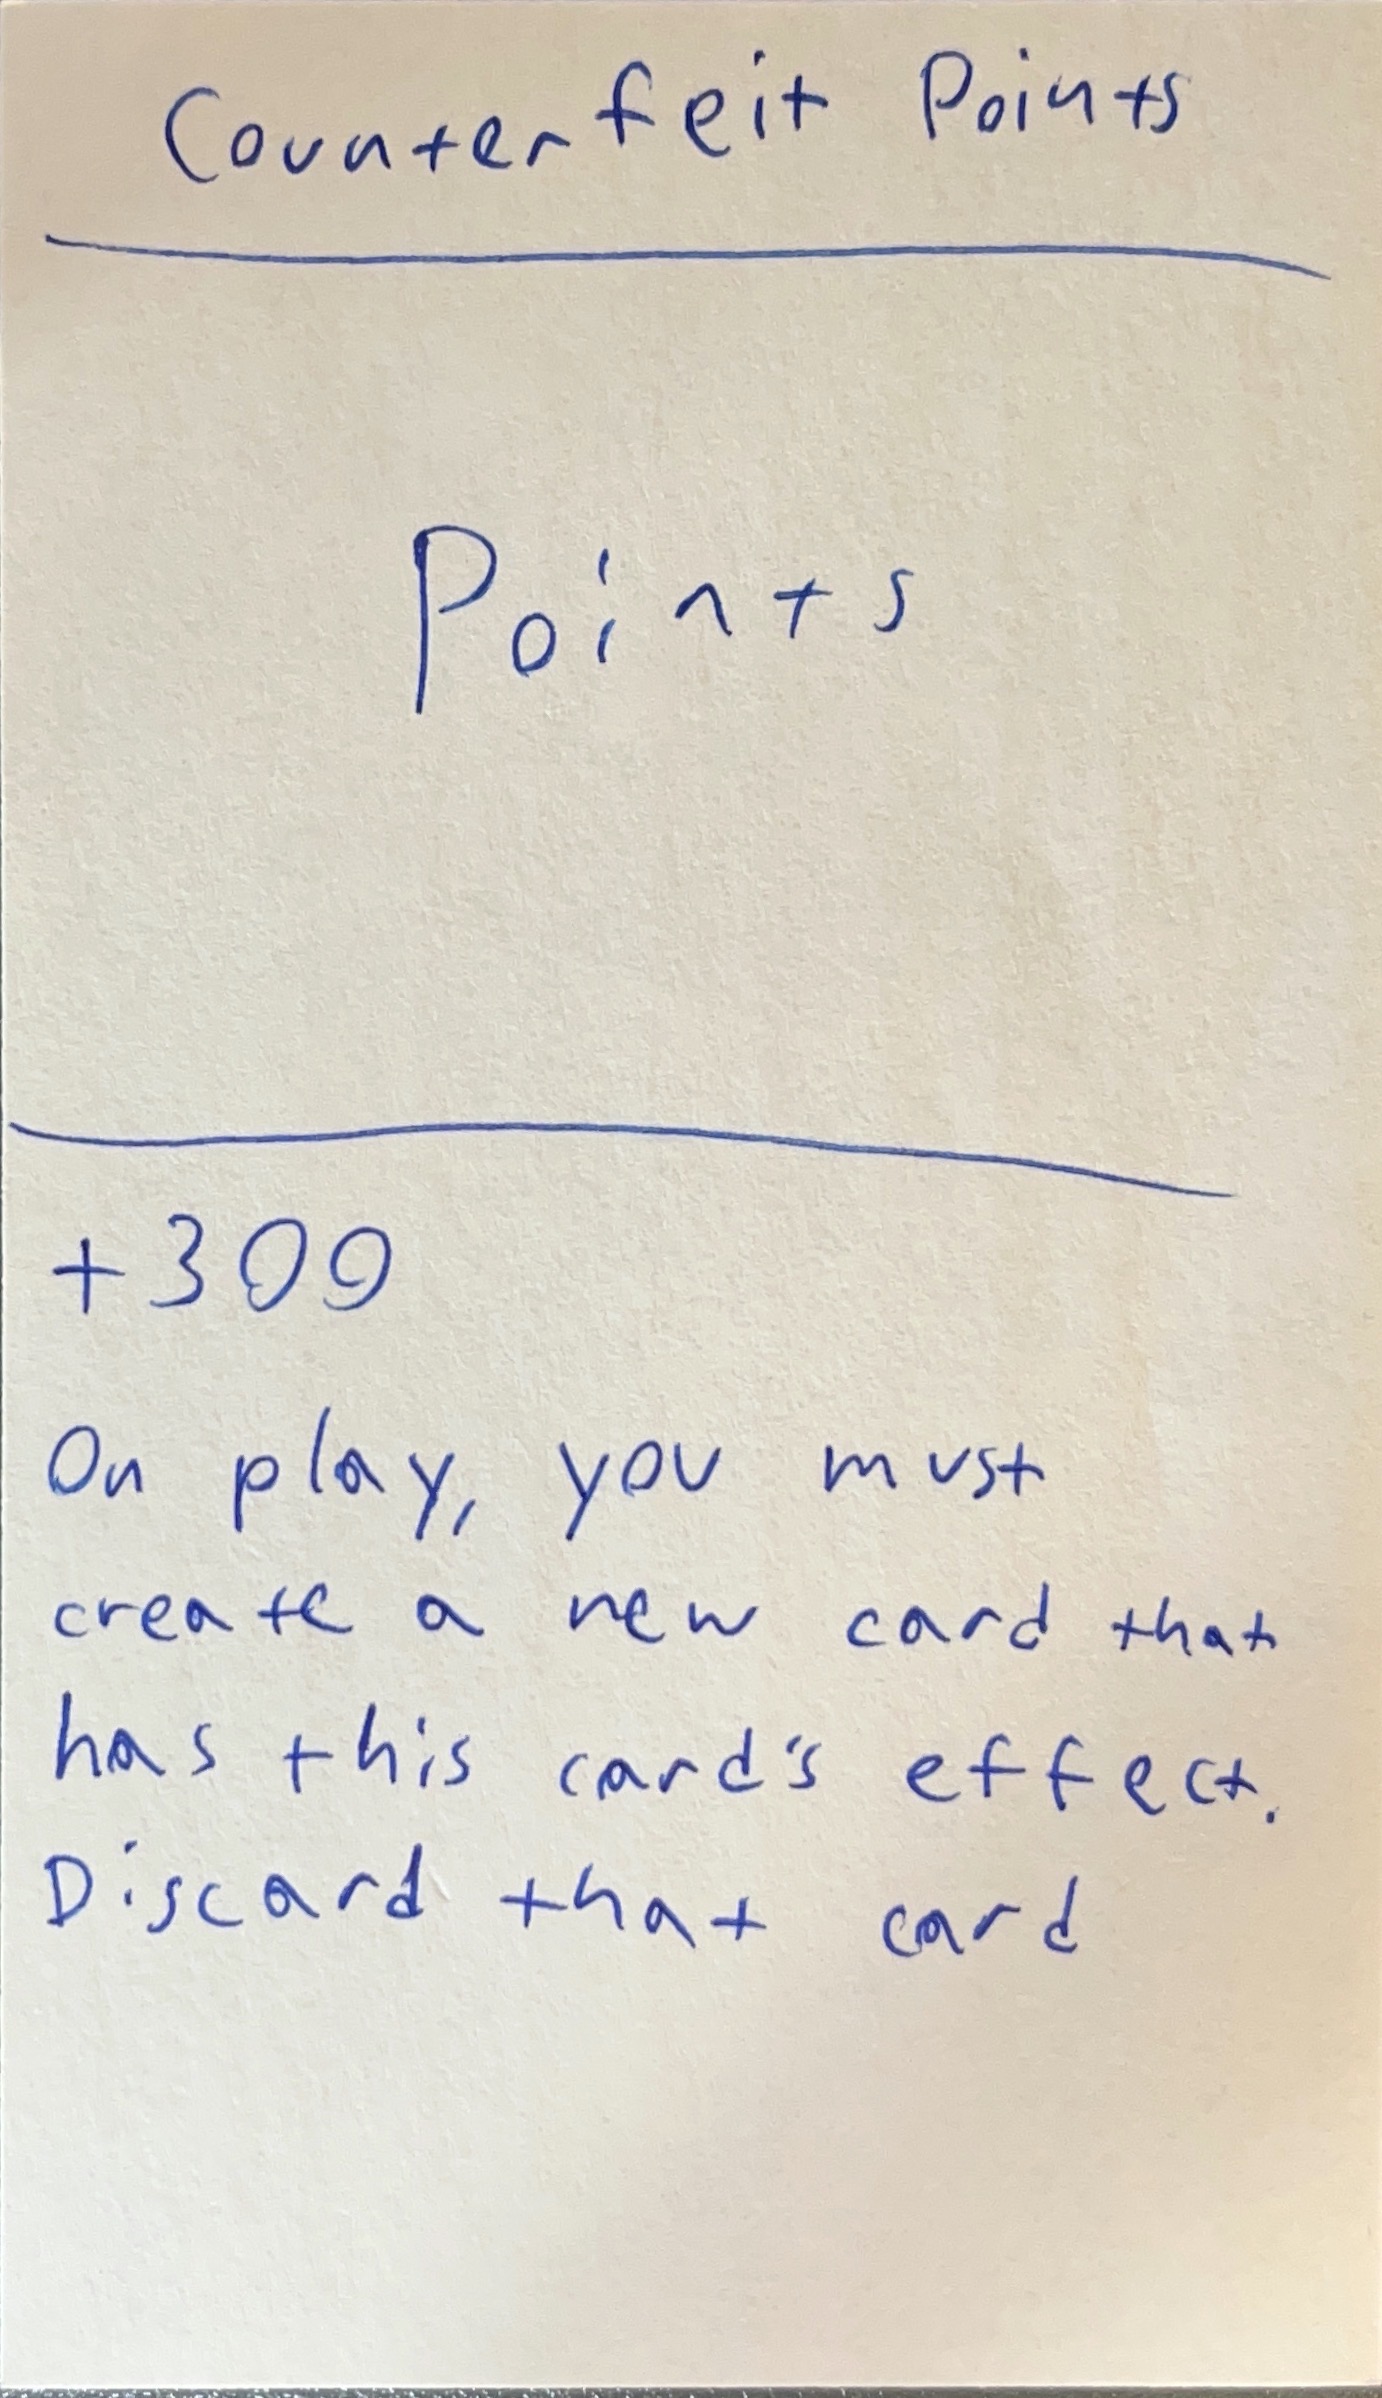 Counterfeit Points
Points
+300
On play, you must
create a new card that
has this card's effect.
Discard that card